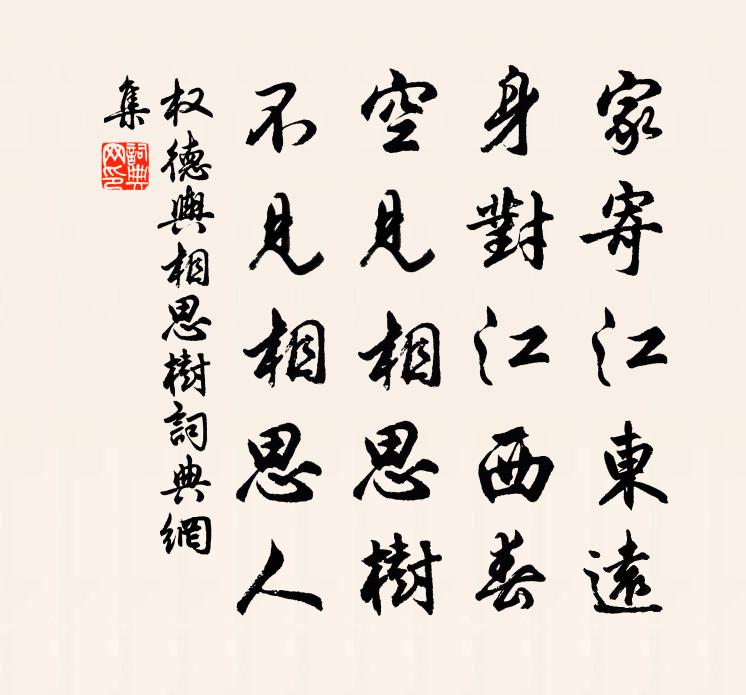 家寄江東遠
身對江西春
空見相思樹
不見相思人
权德輿相思樹詞典網
集
詞典
网印